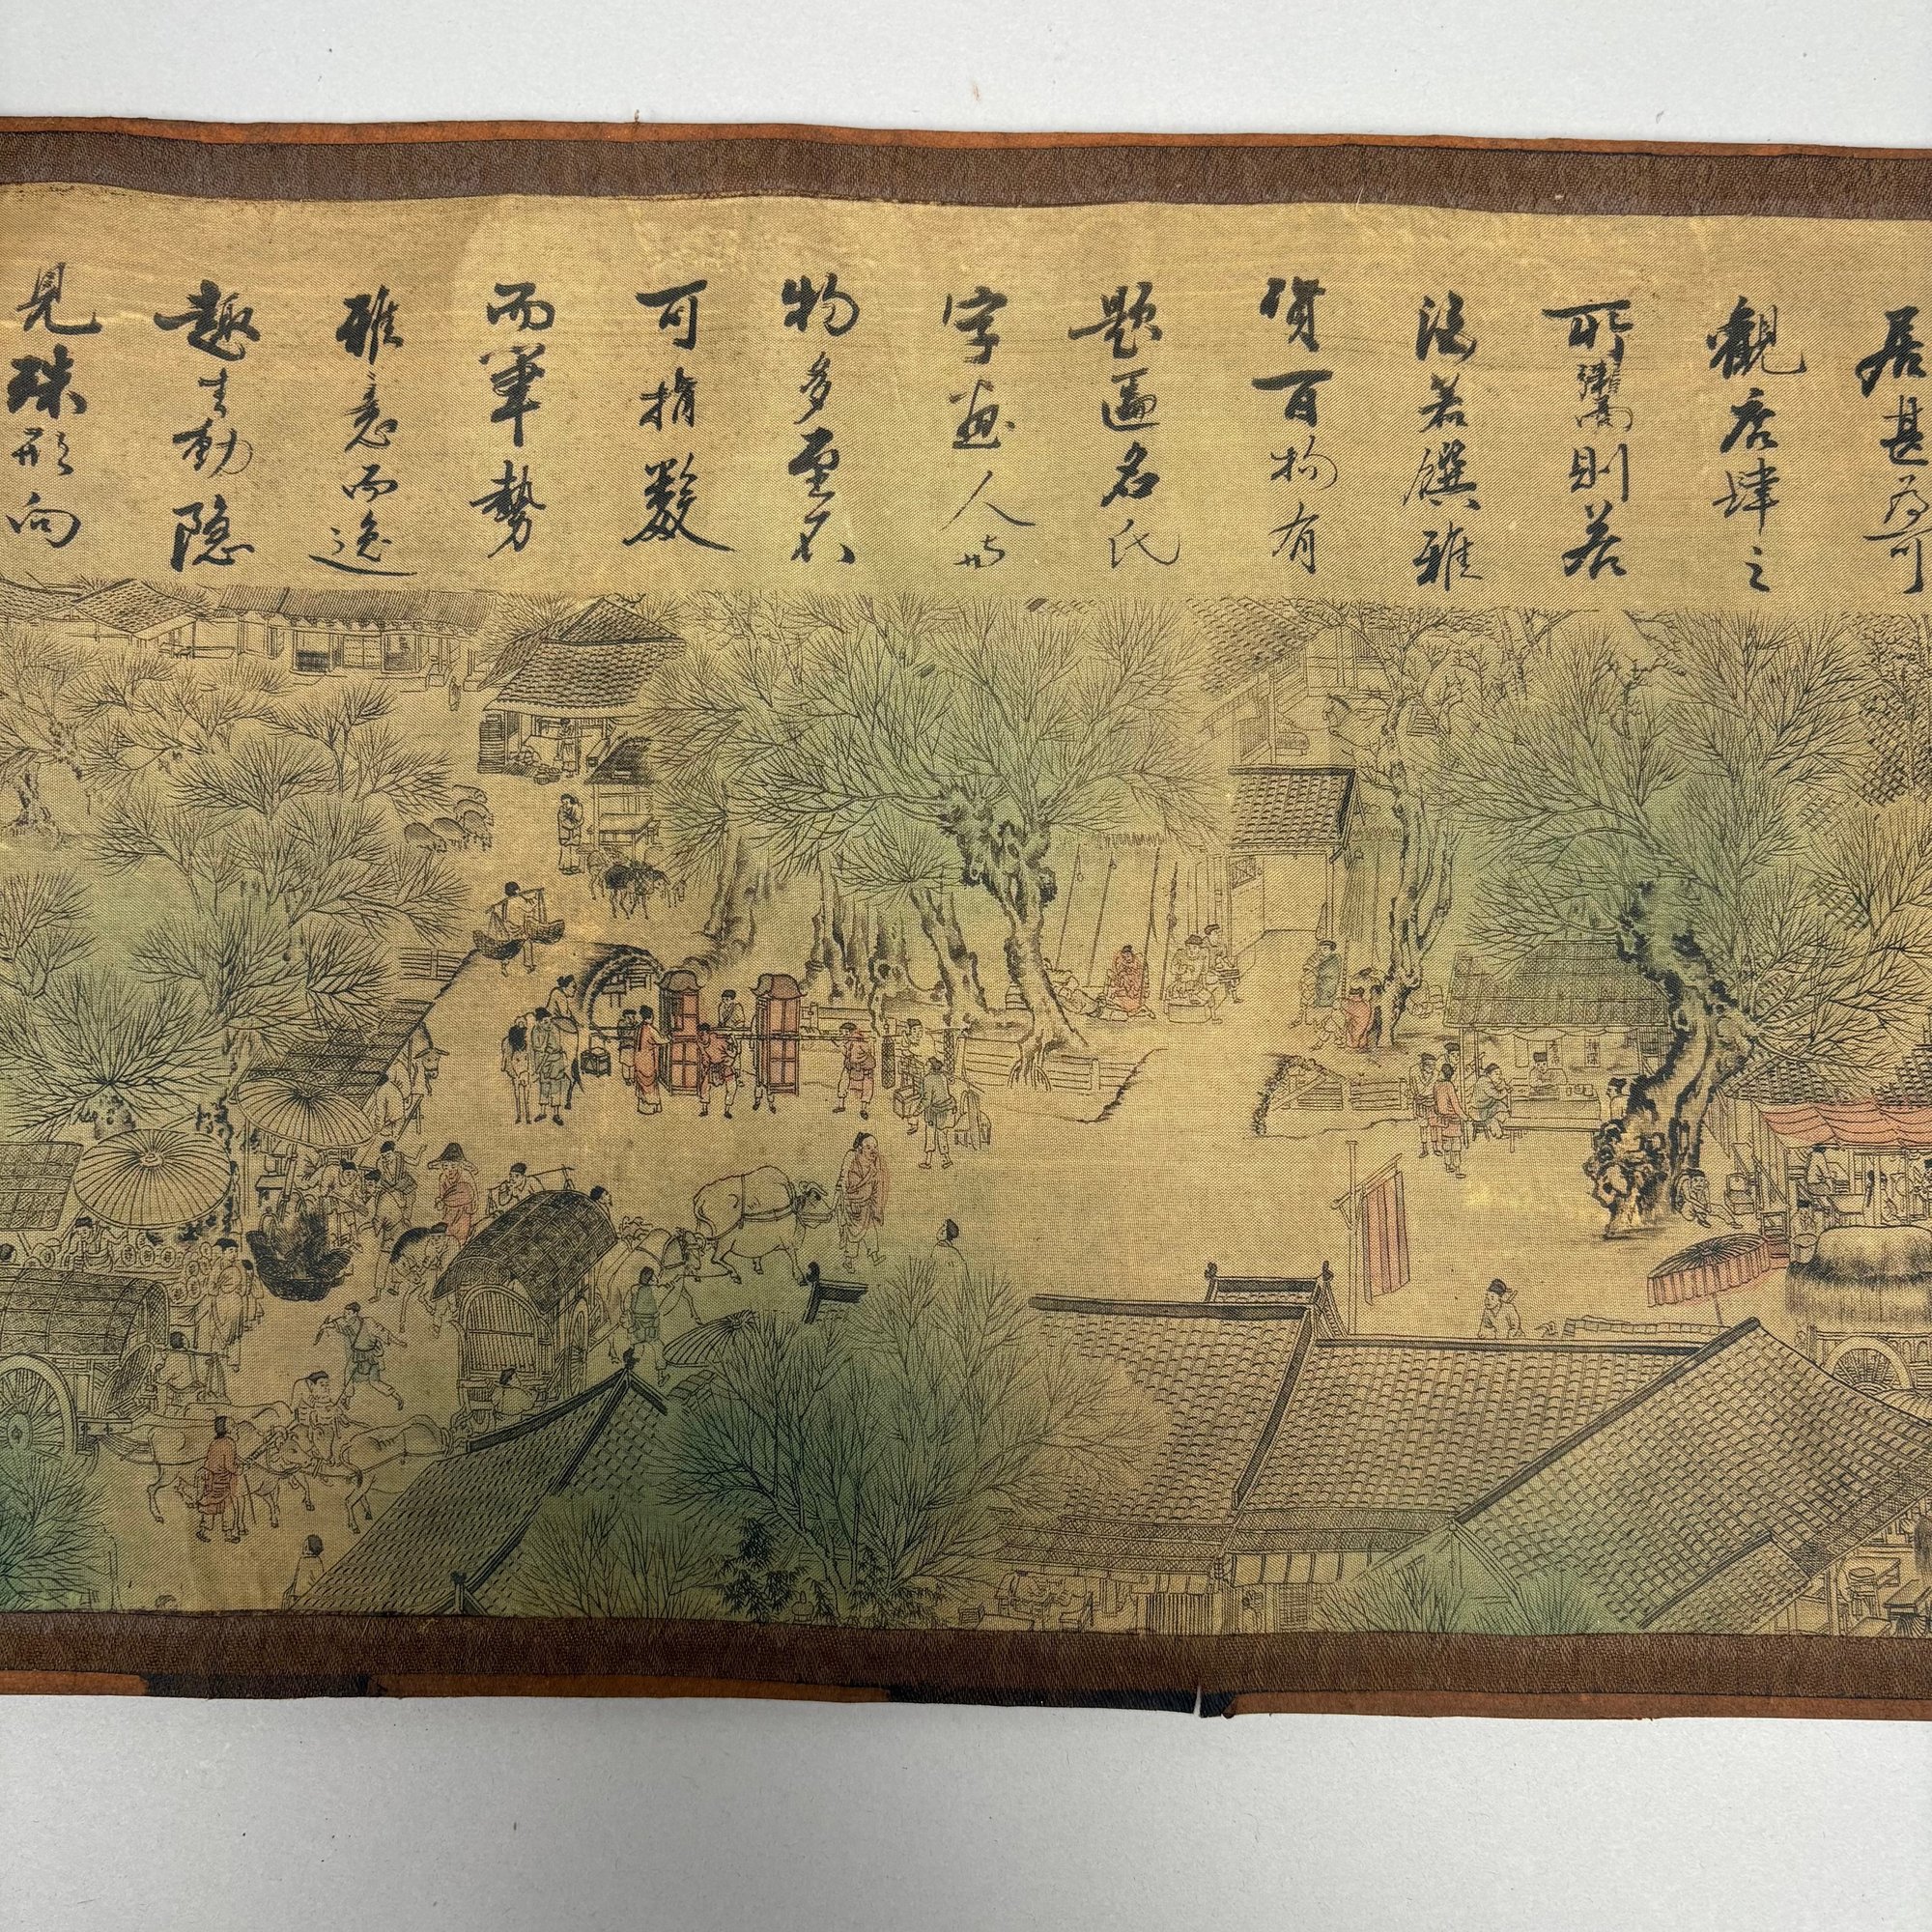 居甚為可
觀店肆之
所鬻則若
酒若饌雅
貨百物有
題匾名氏
字畫人與
物多至不
可指數
而筆勢
雅意而逸
趣生動隐
見珠形向